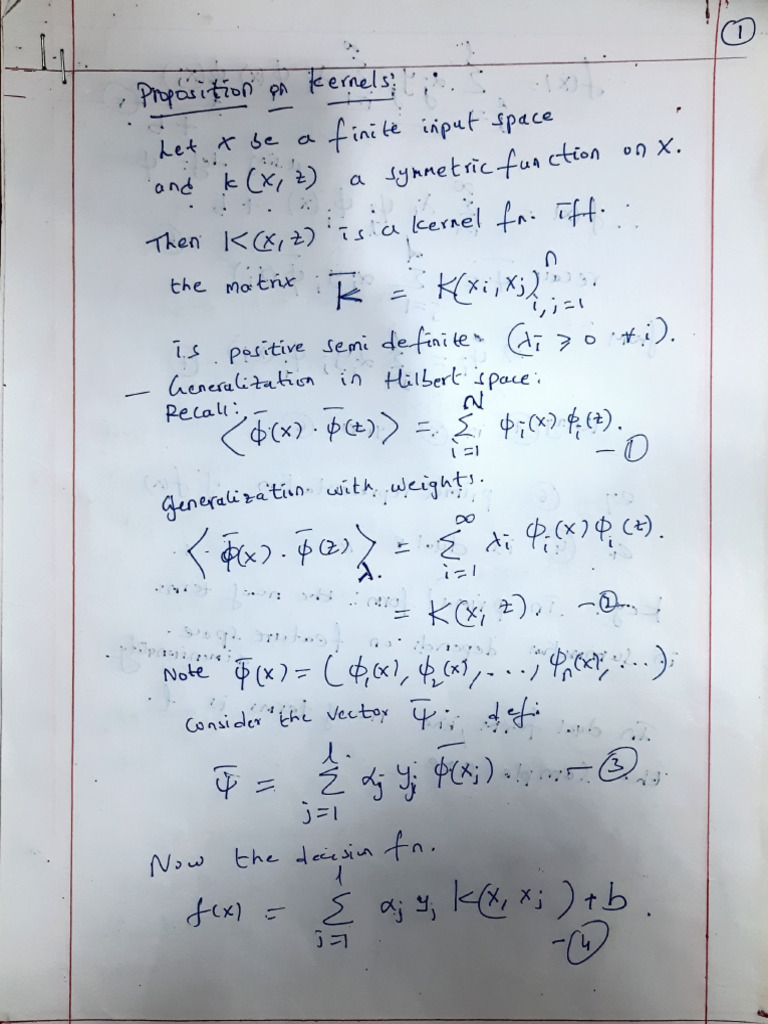 ①
Proposition on kernels:
Let X be a finite input space
and K(x, z) a symmetric function on X.
Then K(x, z) is a kernel fn. iff.
the matrix K̄ = K(xi, xj)ⁿ i,j=1
is positive semi definite (λi ⩾ 0 ∀ i).
— Generalization in Hilbert space:
Recall:
⟨ϕ̄(x) · ϕ̄(z)⟩ = Σ_{i=1}^{N} ϕi(x) ϕi(z). — ①
Generalization with weights.
⟨ϕ̄(x) · ϕ̄(z)⟩_λ = Σ_{i=1}^{∞} λi ϕi(x) ϕi(z).
= K(x, z). — ②
Note ϕ̄(x) = (ϕ1(x), ϕ2(x), ..., ϕn(x), ...)
Consider the vector ψ̄ : def:
ψ̄ = Σ_{j=1}^{l} αj yj ϕ̄(xj) — ③
Now the decision fn.
f(x) = Σ_{j=1}^{l} αj yj K(x, xj) + b. — ④